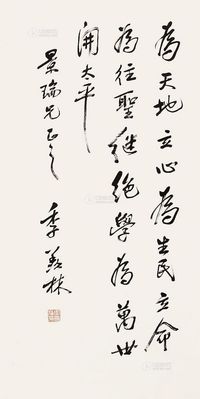 為天地立心為生民立命
為往聖継絕學為萬世
開太平
景瑞兄正之
季羨林